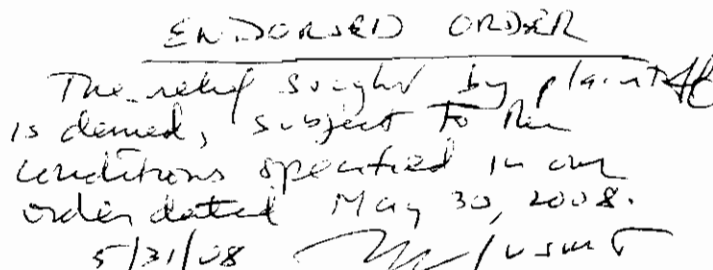 ENDORSED ORDER
The relief sought by plaintiff
is denied, subject to the
conditions specified in our
order dated May 30, 2008.
5/31/08 /USMJ